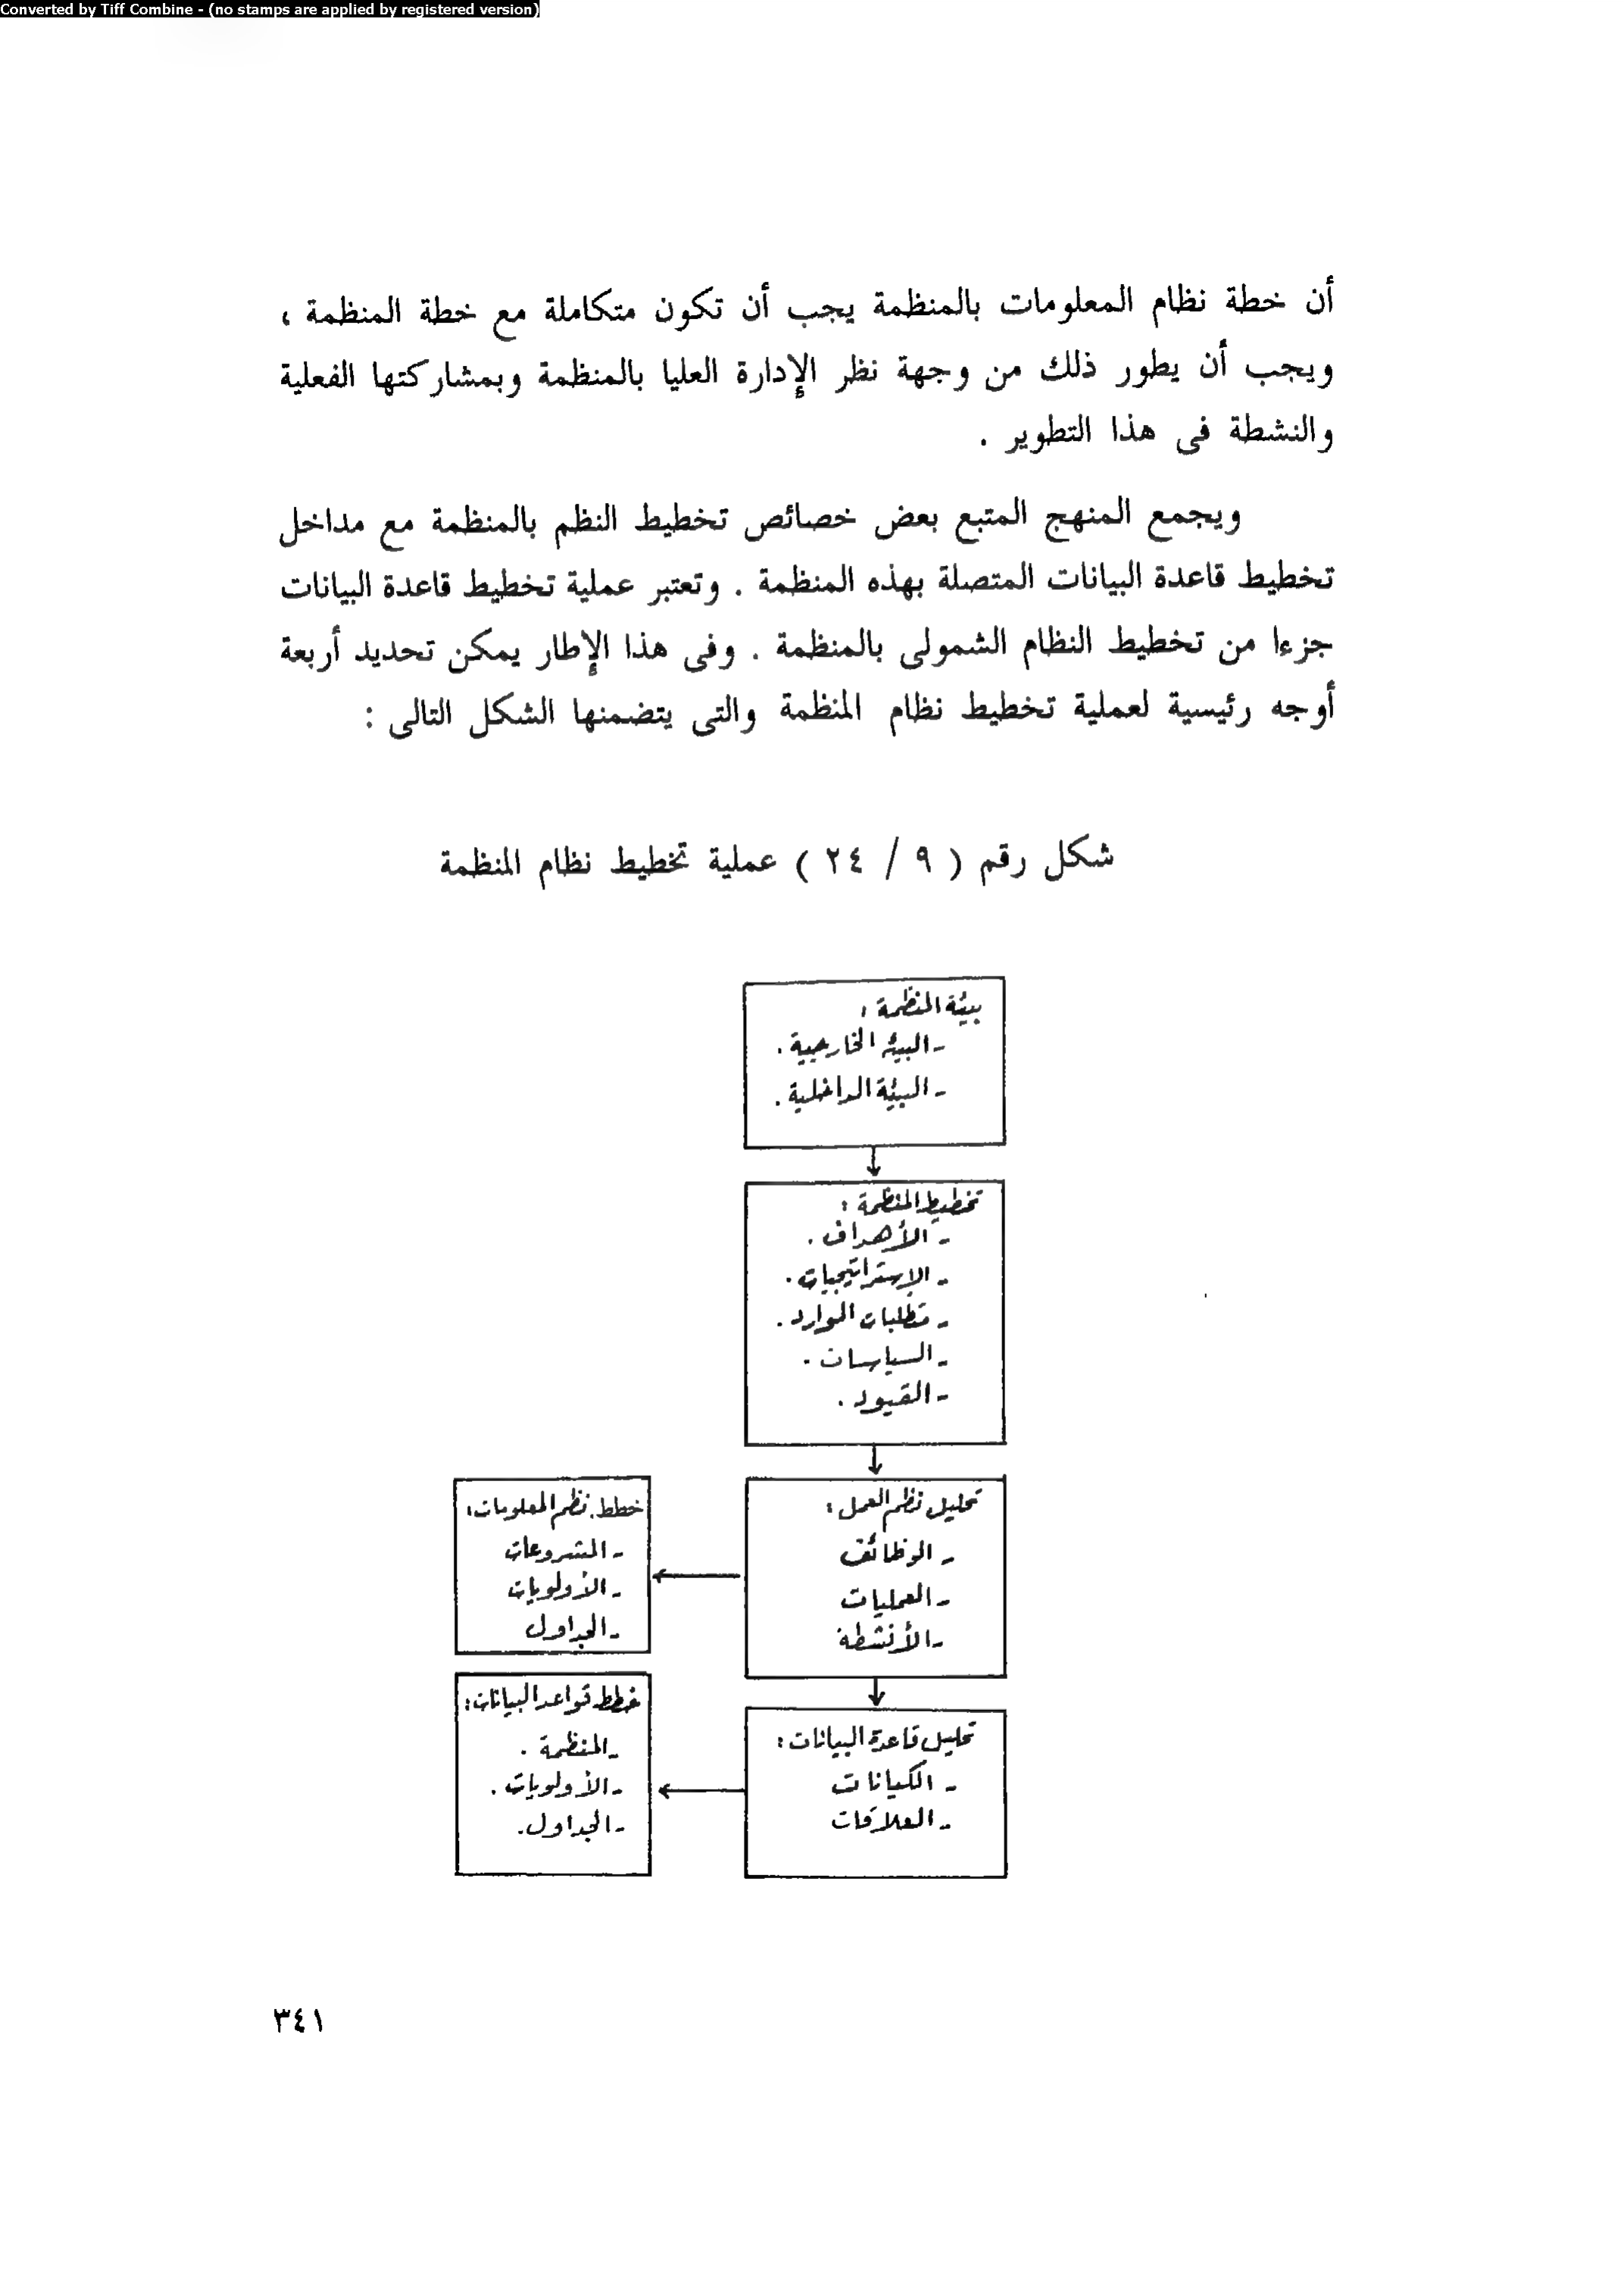 Converted by Tiff Combine - (no stamps are applied by registered version)
أن خطة نظام المعلومات بالمنظمة يجب أن تكون متكاملة مع خطة المنظمة ،
ويجب أن يطور ذلك من وجهة نظر الإدارة العليا بالمنظمة وبمشاركتها الفعلية
والنشطة فى هذا التطوير .
ويجمع المنهج المتبع بعض خصائص تخطيط النظم بالمنظمة مع مداخل
تخطيط قاعدة البيانات المتصلة بهذه المنظمة . وتعتبر عملية تخطيط قاعدة البيانات
جزءا من تخطيط النظام الشمولى بالمنظمة . وفى هذا الإطار يمكن تحديد أربعة
أوجه رئيسية لعملية تخطيط نظام المنظمة والتى يتضمنها الشكل التالى :
شكل رقم ( ٩ / ٢٤ ) عملية تخطيط نظام المنظمة
بيئة المنظمة :
- البيئه الخارجية .
- البيئة الداخلية .
تخطيط المنظمة :
- الأهداف .
- الإستراتيجيات .
- متطلبات الموارد .
- السياسات .
- القيود .
تحليل نظم العمل :
- الوظائف
- العمليات
- الأنشطة
خطط نظم المعلومات :
- المشروعات
- الأولويات
- الجداول
تحليل قاعدة البيانات :
- الكيانات
- العلاقات
خطط قواعد البيانات :
- المنظمة .
- الأولويات .
- الجداول .
٣٤١